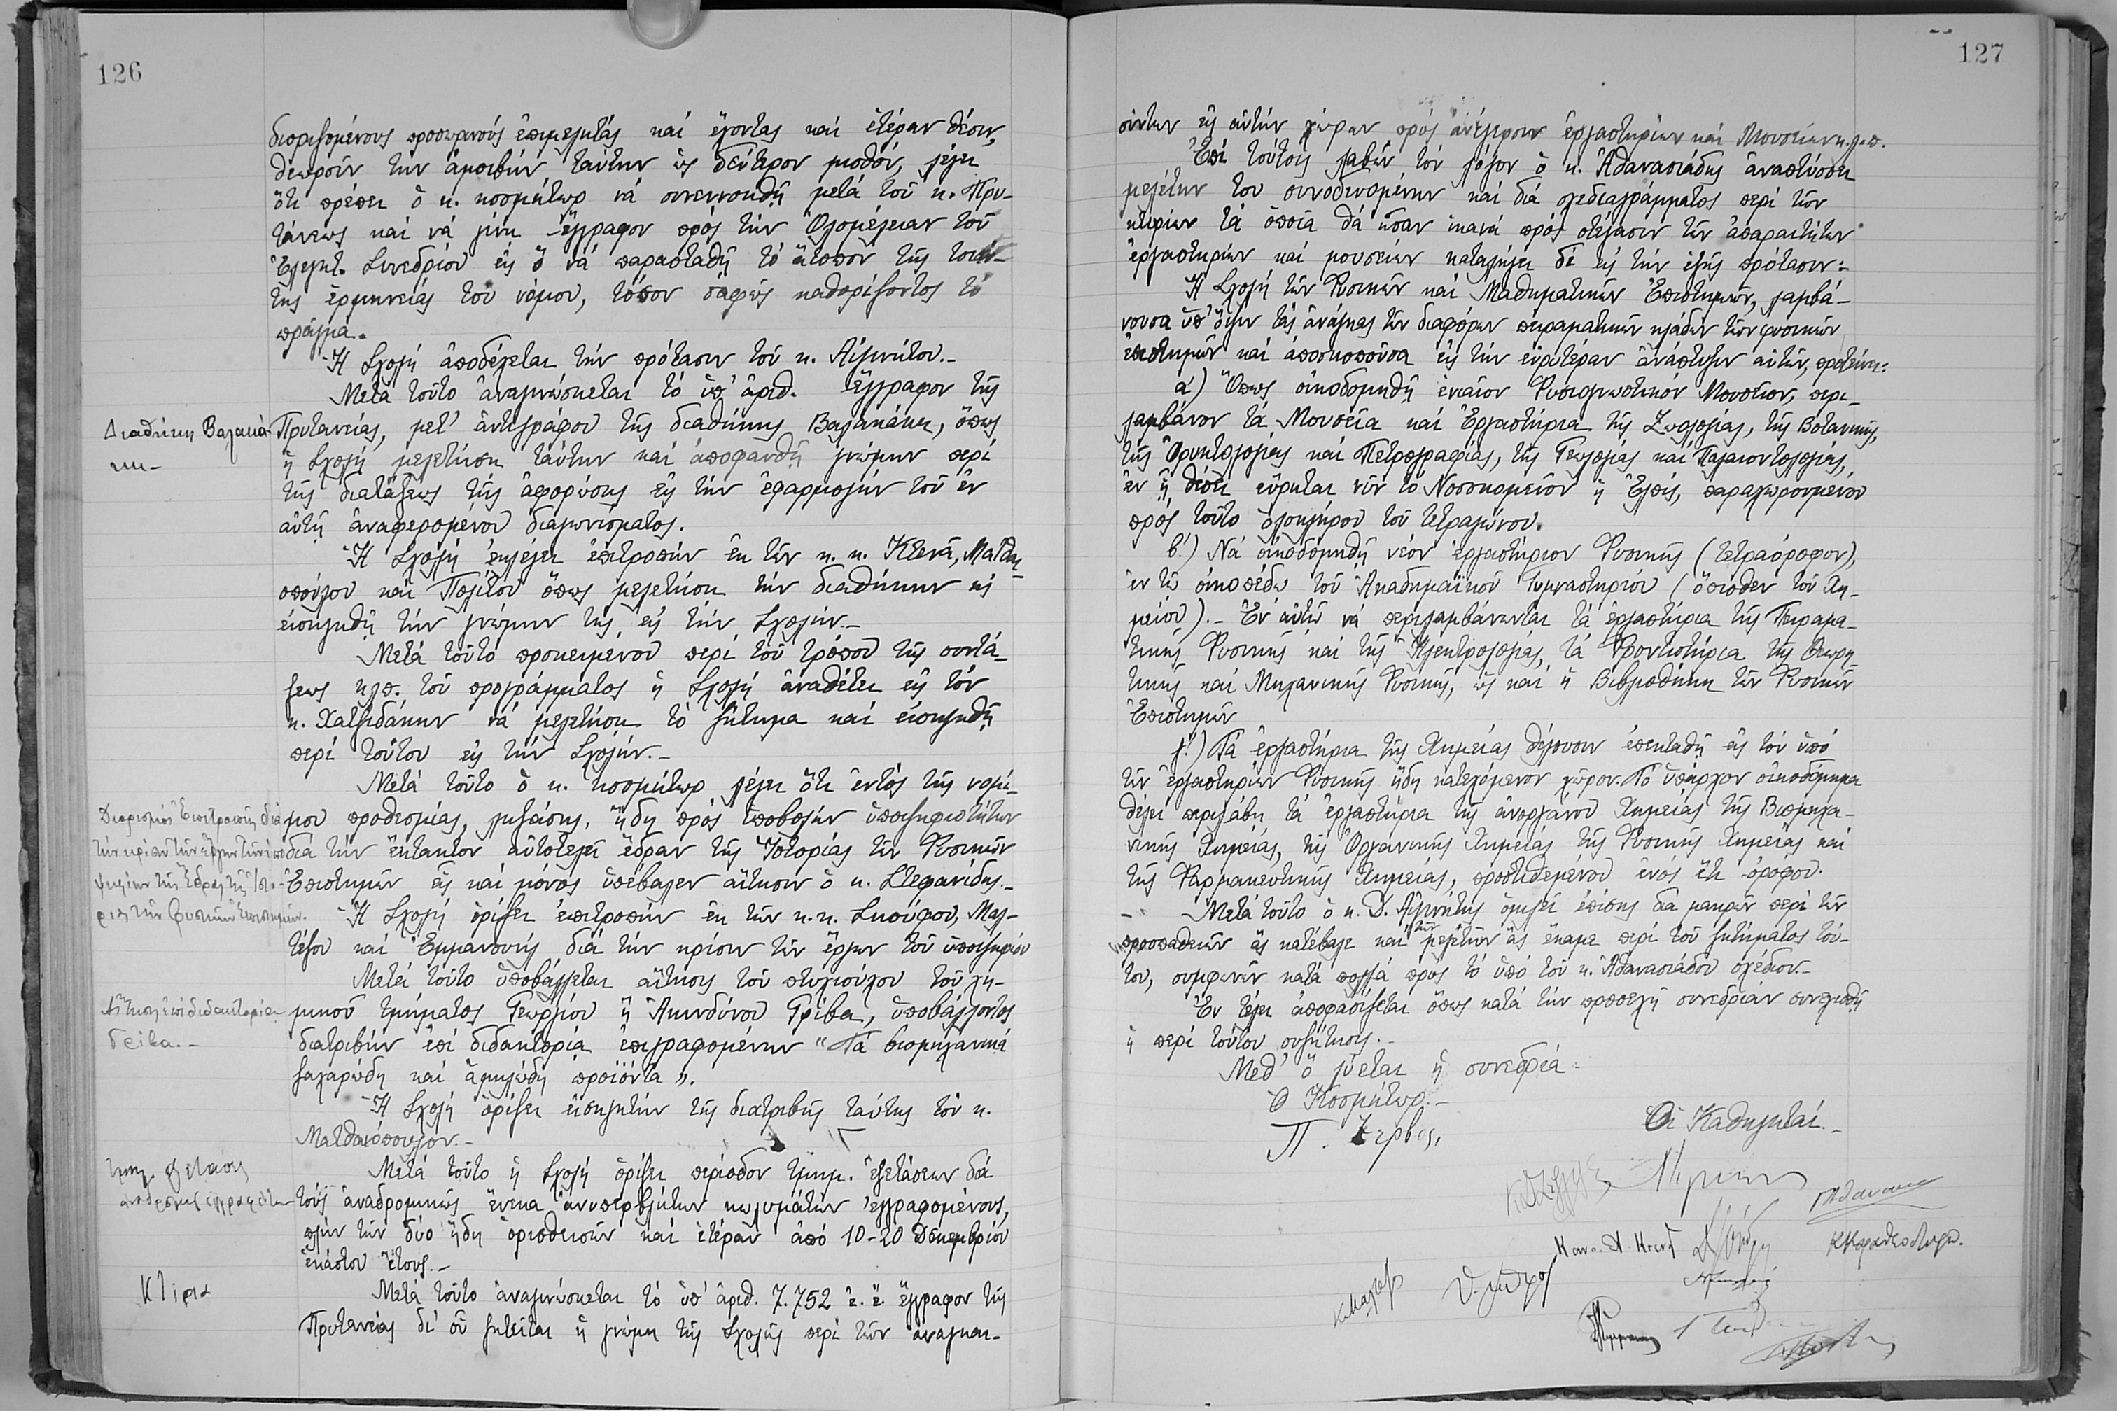 126
διοριζομένους προσωρινούς ἐπιμελητάς καί ἔχοντας καί ἑτέραν θέσιν,
θεωροῦν τήν ἀμοιβήν ταύτην ὡς δεύτερον μισθόν, λέγει
ὅτι πρέπει ὁ κ. κοσμήτωρ νά συνεννοηθῇ μετά τοῦ κ. Πρυ-
τάνεως καί νά γίνῃ ἔγγραφον πρός τήν Ὁλομέλειαν τοῦ
Ἐλεγκτ. Συνεδρίου εἰς ὅ νά παρασταθῇ τό ἄτοπον τῆς τοιαύ-
της ἑρμηνείας τοῦ νόμου, τόσον σαφῶς καθορίζοντος τό
πρᾶγμα.
Ἡ Σχολή ἀποδέχεται τήν πρότασιν τοῦ κ. Αἰγινήτου.-
Μετά τοῦτο ἀναγινώσκεται τό ὑπ' ἀριθ. ἔγγραφον τῆς
Διαθήκη Βαλακά-
κη-
Πρυτανείας, μετ' ἀντιγράφου τῆς διαθήκης Βαλακάκη, ὅπως
ἡ Σχολή μελετήσῃ ταύτην καί ἀποφανθῇ γνώμην περί
τῆς διατάξεως τῆς ἀφορώσης εἰς τήν ἐφαρμογήν τοῦ ἐν
αὐτῇ ἀναφερομένου διαγωνίσματος.
Ἡ Σχολή ἐκλέγει ἐπιτροπήν ἐκ τῶν κ. κ. Κτενᾶ, Ματθαι-
οπούλου καί Πολίτου ὅπως μελετήσῃ τήν διαθήκην κ
εἰσηγηθῇ τήν γνώμην της εἰς τήν Σχολήν.-
Μετά τοῦτο προκειμένου περί τοῦ τρόπου τῆς συντά-
ξεως κλπ. τοῦ προγράμματος ἡ Σχολή ἀναθέτει εἰς τόν
κ. Χατζιδάκην νά μελετήσῃ τό ζήτημα καί εἰσηγηθῇ
περί τούτου εἰς τήν Σχολήν.-
Μετά τοῦτο ὁ κ. κοσμήτωρ λέγει ὅτι ἐντός τῆς νομί-
Διορισμός Ἐπιτροπῆς διά
τήν κρίσιν τῶν ἔργων τῶν ὑπο
ψηφίων τῆς ἕδρας τῆς Ἱστο-
ρίας τῶν Φυσικῶν Ἐπιστημῶν.
μου προθεσμίας, ληξάσης, ἤδη πρός ὑποβολήν ὑποψηφιοτήτων
διά τήν ἔκτακτον αὐτοτελῆ ἕδραν τῆς Ἱστορίας τῶν Φυσικῶν
Ἐπιστημῶν εἷς καί μόνος ὑπέβαλεν αἴτησιν ὁ κ. Στεφανίδης.-
Ἡ Σχολή ὁρίζει ἐπιτροπήν ἐκ τῶν κ. κ. Σκούφου, Μαλ-
τέζου καί Ἐμμανουήλ διά τήν κρίσιν τῶν ἔργων τοῦ ὑποψηφίου
Μετά τοῦτο ὑποβάλλεται αἴτησις τοῦ πτυχιούχου τοῦ χη-
Αἴτησις ἐπί διδακτορία
Γρίβα.-
μικοῦ τμήματος Γεωργίου ἤ Ἀκινδύνου Γρίβα, ὑποβάλλοντος
διατριβήν ἐπί διδακτορίᾳ ἐπιγραφομένην "Τά βιομηχανικά
σακχαρώδη καί ἀμυλώδη προϊόντα".
Ἡ Σχολή ὁρίζει εἰσηγητήν τῆς διατριβῆς ταύτης τόν κ.
Ματθαιόπουλον.-
Τμημ. ἐξετάσεις
ἀναδρομικῶς ἐγγραφέντων
Μετά τοῦτο ἡ Σχολή ὁρίζει περίοδον τμημ. ἐξετάσεων διά
τούς ἀναδρομικῶς ἕνεκα ἀνυπερβλήτων κωλυμάτων ἐγγραφομένους,
πλήν τῶν δύο ἤδη ὁρισθεισῶν καί ἑτέραν ἀπό 10-20 Δεκεμβρίου
ἑκάστου ἔτους.-
Κτίρια
Μετά τοῦτο ἀναγινώσκεται τό ὑπ' ἀριθ. 7.752 ἐ. ἔ ἔγγραφον τῆς
Πρυτανείας δι' οὗ ζητεῖται ἡ γνώμη τῆς Σχολῆς περί τῶν ἀναγκαι-
127
ούντων εἰς αὐτήν χώρων πρός ἀνέγερσιν ἐργαστηρίων καί Μουσείων κλπ.
Ἐπί τούτοις λαβών τόν λόγον ὁ κ. Ἀθανασιάδης ἀναπτύσσει
μελέτην του συνοδευομένην καί διά σχεδιαγράμματος περί τῶν
κτιρίων τά ὁποῖα θά ἦσαν ἱκανά πρός στέγασιν τῶν ἀπαραιτήτων
ἐργαστηρίων καί μουσείων καταλήγει δέ εἰς τήν ἑξῆς πρότασιν:
Ἡ Σχολή τῶν Φυσικῶν καί Μαθηματικῶν Ἐπιστημῶν, λαμβά-
νουσα ὑπ' ὄψιν τάς ἀνάγκας τῶν διαφόρων πειραματικῶν κλάδων τῶν φυσικῶν
ἐπιστημῶν καί ἀποσκοποῦσα εἰς τήν εὐρυτέραν ἀνάπτυξιν αὐτῶν, προτείνει:
α') Ὅπως οἰκοδομηθῇ ἑνιαῖον Φυσιογνωστικόν Μουσεῖον, περι-
λαμβάνον τά Μουσεῖα καί Ἐργαστήρια τῆς Ζωολογίας, τῆς Βοτανικῆς,
τῆς Ὀρυκτολογίας καί Πετρογραφίας, τῆς Γεωλογίας καί Παλαιοντολογίας,
ἐν ᾗ θέσει εὕρηται νῦν τό Νοσοκομεῖον ἡ Ἐλπίς, παραχωρουμένου
πρός τοῦτο ὁλοκλήρου τοῦ τετραγώνου.
β') Νά οἰκοδομηθῇ νέον ἐργαστήριον Φυσικῆς (τετραόροφον),
ἐν τῷ οἰκοπέδῳ τοῦ Ἀκαδημαϊκοῦ Γυμναστηρίου (ὄπισθεν τοῦ Χη-
μείου).- Ἐν αὐτῷ νά περιλαμβάνωνται τά ἐργαστήρια τῆς Πειραμα-
τικῆς Φυσικῆς καί τῆς Ἠλεκτρολογίας, τά Φροντιστήρια τῆς Θεωρη
τικῆς καί Μηχανικῆς Φυσικῆς, ὡς καί ἡ Βιβλιοθήκη τῶν Φυσικῶν
Ἐπιστημῶν
γ') Τά ἐργαστήρια τῆς Χημείας θέλουσιν ἐπεκταθῇ εἰς τόν ὑπό
τῶν ἐργαστηρίων Φυσικῆς ἤδη κατεχόμενον χῶρον. Τό ὑπάρχον οἰκοδόμημα
θέλει περιλάβει τά ἐργαστήρια τῆς ἀνοργάνου Χημείας τῆς Βιομηχα-
νικῆς Χημείας, τῆς Ὀργανικῆς Χημείας τῆς Φυσικῆς Χημείας καί
τῆς Φαρμακευτικῆς Χημείας, προστιθεμένου ἑνός ἔτι ὀρόφου.
Μετά τοῦτο ὁ κ. Δ. Αἰγινήτης ὁμιλεῖ ἐπίσης διά μακρῶν περί τῶν
προσπαθειῶν ἅς κατέβαλε καί τῶν μελετῶν ἅς ἔκαμε περί τοῦ ζητήματος τού-
του, συμφωνῶν κατά πολλά πρός τό ὑπό τοῦ κ. Ἀθανασιάδου σχέδιον.-
Ἐν τέλει ἀποφασίζεται ὅπως κατά τήν προσεχῆ συνεδρίαν συνεχισθῇ
ἡ περί τούτου συζήτησις.-
Μεθ' ὅ λύεται ἡ συνεδρία:
Ὁ Κοσμήτωρ.-
Οἱ Καθηγηταί.-
Π. Ζερβός,